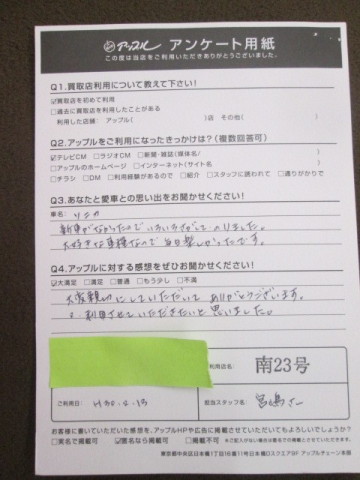 アップル アンケート用紙
この度は当店をご利用いただきありがとうございました。
Q1.買取店利用について教えて下さい!
☑買取店を初めて利用
□過去に買取店を利用したことがある
利用した店舗: アップル( )店 その他( )
Q2.アップルをご利用になったきっかけは?(複数回答可)
☑テレビCM □ラジオCM □新聞・雑誌(媒体名/ )
□アップルのホームページ □インターネット(サイト名 )
□チラシ □DM □利用経験があるので □紹介 □スタッフに誘われて □通りがかりで
Q3.あなたと愛車との思い出をお聞かせください!
車名:
新車がなかったのでいろいろさがしてのりました。
大好きな車種なので毎日楽しかったです。
Q4.アップルに対する感想をぜひお聞かせください!
☑大満足 □満足 □普通 □もう少し □不満
大変親切にしていただいてありがとうございます。
利用させていただきたいと思いました。
利用店名: 南23号
ご利用日: H30.4.13
担当スタッフ名: 宮嶋さん
お客様に書いていただいた感想を、アップルHPや広告に掲載させていただいてもよろしいでしょうか?
□実名で掲載可 ☑匿名なら掲載可 □掲載不可 ※ご記入がない場合は匿名での掲載とさせていただきます。
東京都中央区日本橋1丁目16番11号日本橋Dスクエア8F アップルチェーン本部